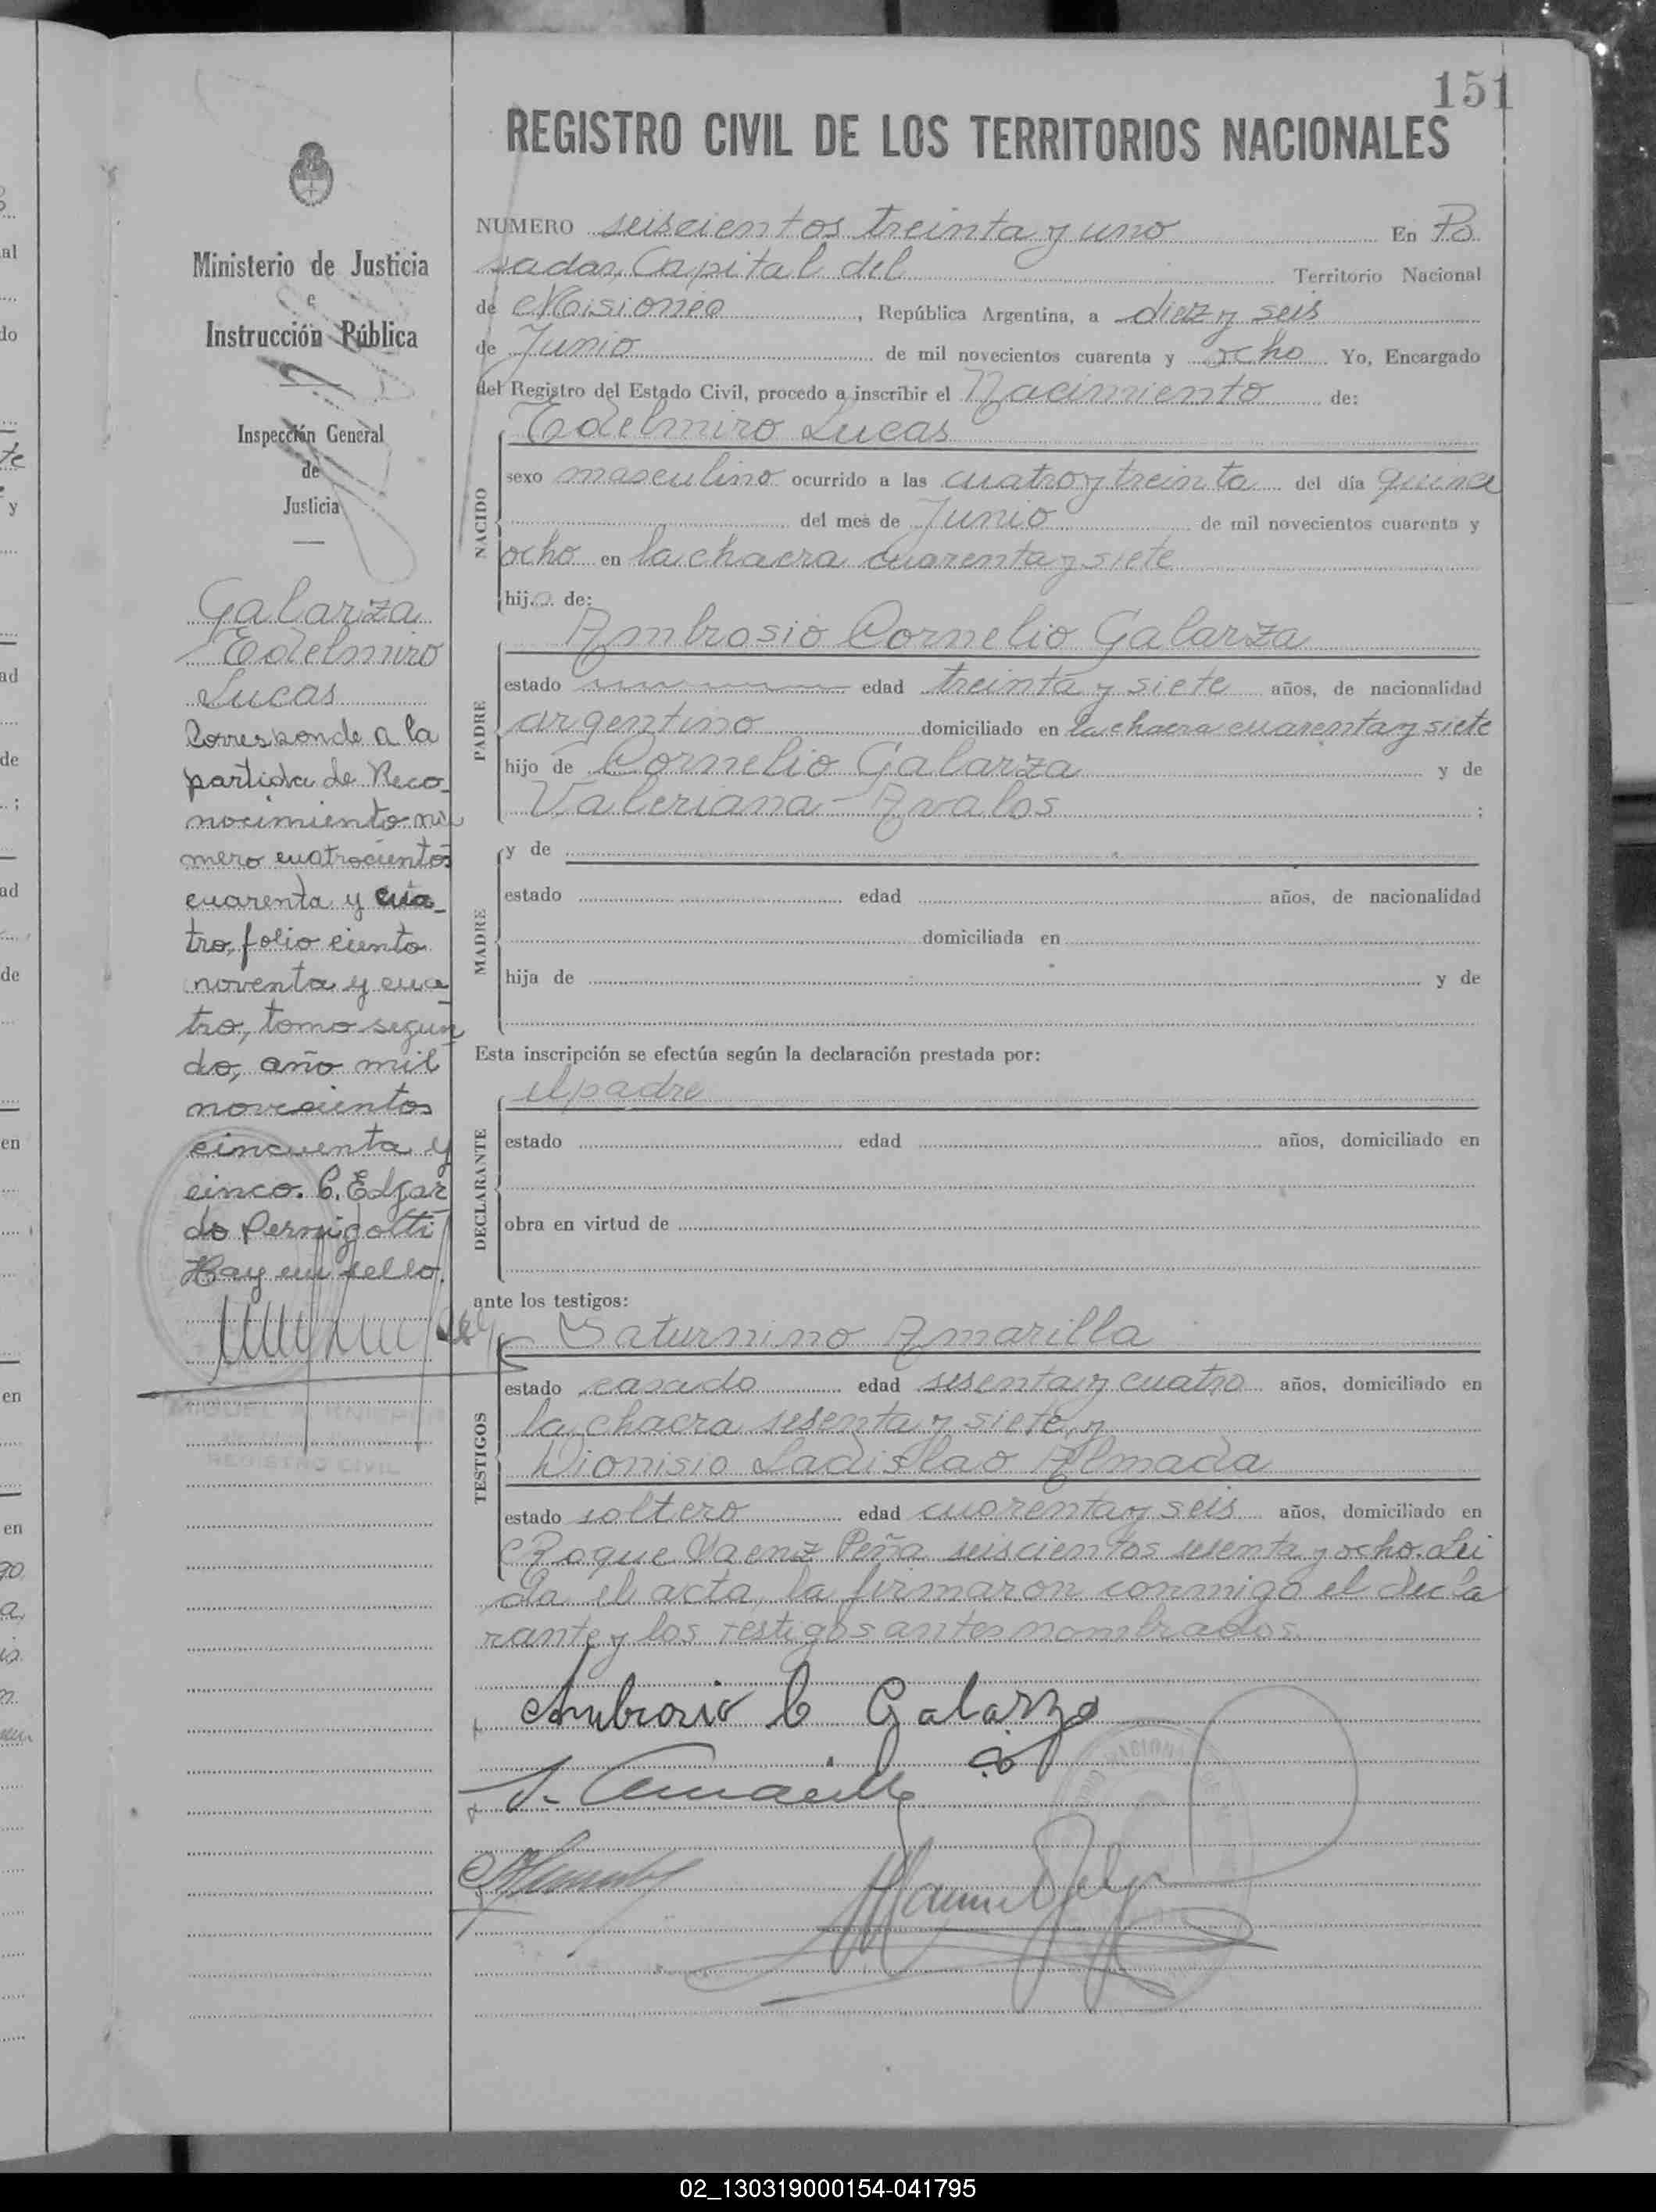 151
REGISTRO CIVIL DE LOS TERRITORIOS NACIONALES
Ministerio de Justicia
e
Instrucción Pública
Inspección General
de
Justicia
Galarza
Edelmiro
Lucas
Corresponde a la
partida de Reco-
nocimiento nú
mero cuatrocientos
cuarenta y cua-
tro, folio ciento
noventa y cua-
tro, tomo segun
do, año mil
novecientos
cincuenta y
cinco. C. Edgar
do Pernigotti
Hay un sello.
REGISTRO CIVIL
NUMERO seiscientos treinta y uno En Po
sadas, Capital del Territorio Nacional
de Misiones, República Argentina, a diez y seis
de Junio de mil novecientos cuarenta y ocho Yo, Encargado
del Registro del Estado Civil, procedo a inscribir el Nacimiento de:
NACIDO
Edelmiro Lucas
sexo masculino ocurrido a las cuatro y treinta del día quince
del mes de Junio de mil novecientos cuarenta y
ocho en la chacra cuarenta y siete
hijo de:
PADRE
Ambrosio Cornelio Galarza
estado edad treinta y siete años, de nacionalidad
argentino domiciliado en la chacra cuarenta y siete
hijo de Cornelio Galarza y de
Valeriana Avalos ;
MADRE
y de
estado edad años, de nacionalidad
domiciliada en
hija de y de
Esta inscripción se efectúa según la declaración prestada por:
DECLARANTE
el padre
estado edad años, domiciliado en
obra en virtud de
ante los testigos:
TESTIGOS
Saturnino Amarilla
estado casado edad sesenta y cuatro años, domiciliado en
la chacra sesenta y siete, y
Dionisio Ladislao Almada
estado soltero edad cuarenta y seis años, domiciliado en
Roque Saenz Peña seiscientos sesenta y ocho. Lei
da el acta, la firmaron conmigo el decla
rante y los testigos antes nombrados.
Ambrosio C Galarza
S. Amarilla
02_130319000154-041795